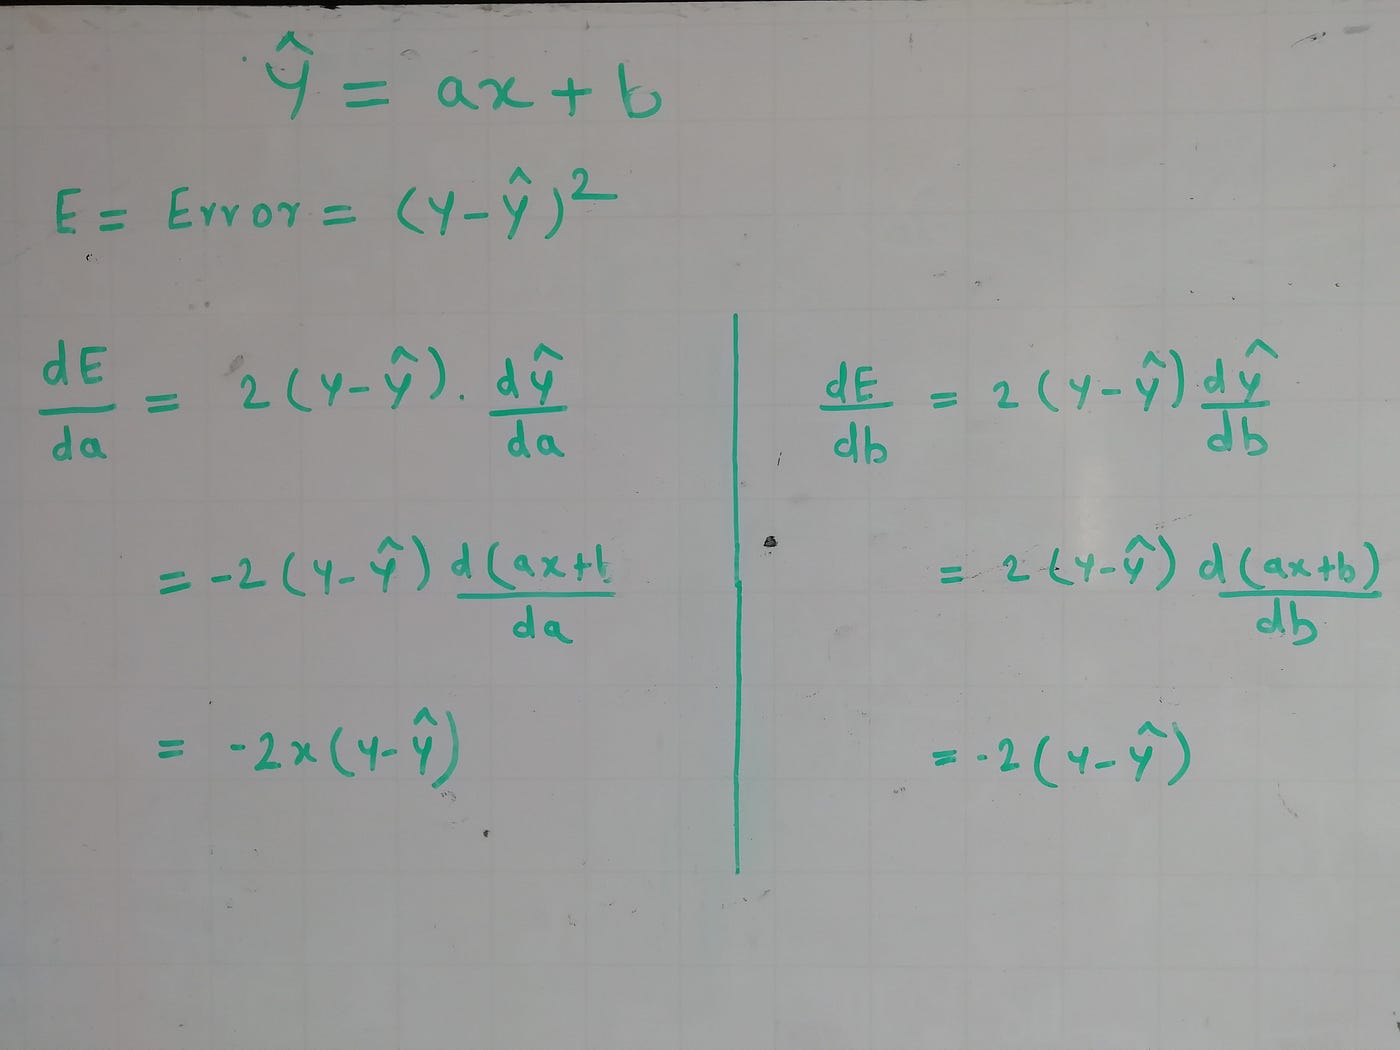 ŷ = ax + b
E = Error = (y-ŷ)²
dE/da = 2(y-ŷ). dŷ/da
= -2(y-ŷ) d(ax+b/da
= -2x(y-ŷ)
dE/db = 2(y-ŷ) dŷ/db
= 2(y-ŷ) d(ax+b)/db
= -2(y-ŷ)